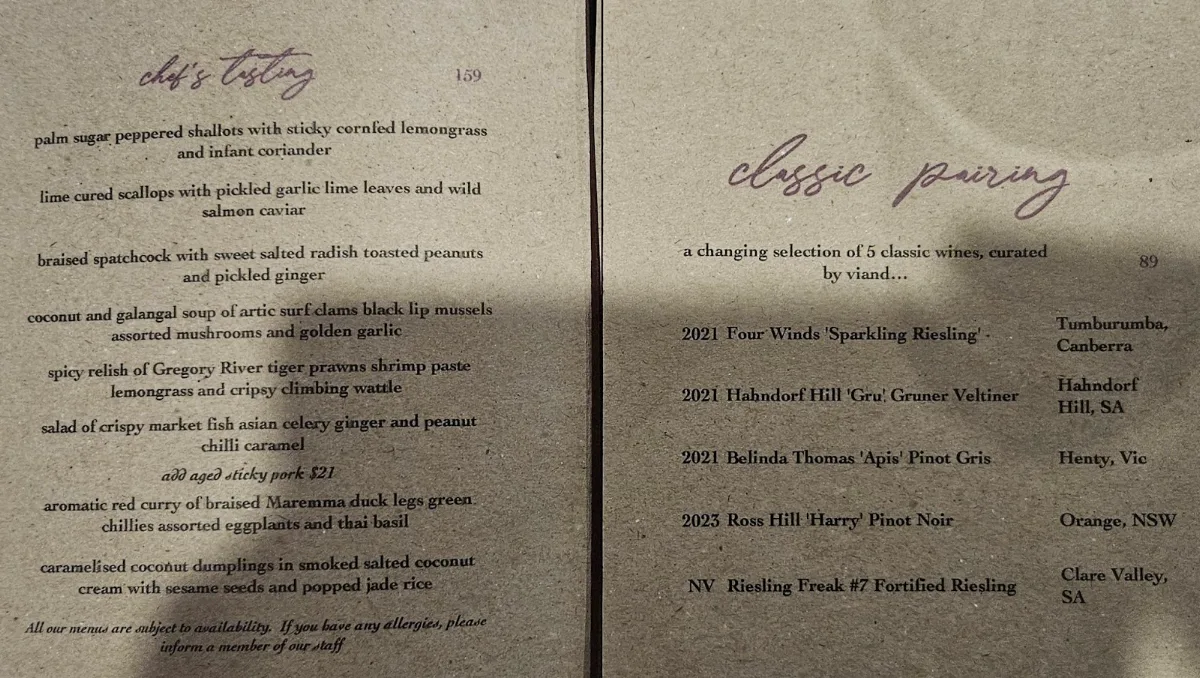 chef's tasting 159
palm sugar peppered shallots with sticky cornfed lemongrass
and infant coriander
lime cured scallops with pickled garlic lime leaves and wild
salmon caviar
braised spatchcock with sweet salted radish toasted peanuts
and pickled ginger
coconut and galangal soup of artic surf clams black lip mussels
assorted mushrooms and golden garlic
spicy relish of Gregory River tiger prawns shrimp paste
lemongrass and cripsy climbing wattle
salad of crispy market fish asian celery ginger and peanut
chilli caramel
add aged sticky pork $21
aromatic red curry of braised Maremma duck legs green
chillies assorted eggplants and thai basil
caramelised coconut dumplings in smoked salted coconut
cream with sesame seeds and popped jade rice
All our menus are subject to availability. If you have any allergies, please
inform a member of our staff
classic pairing
a changing selection of 5 classic wines, curated
by viand...
89
2021 Four Winds 'Sparkling Riesling' -
Tumburumba,
Canberra
2021 Hahndorf Hill 'Gru' Gruner Veltiner
Hahndorf
Hill, SA
2021 Belinda Thomas 'Apis' Pinot Gris Henty, Vic
2023 Ross Hill 'Harry' Pinot Noir Orange, NSW
NV Riesling Freak #7 Fortified Riesling
Clare Valley,
SA